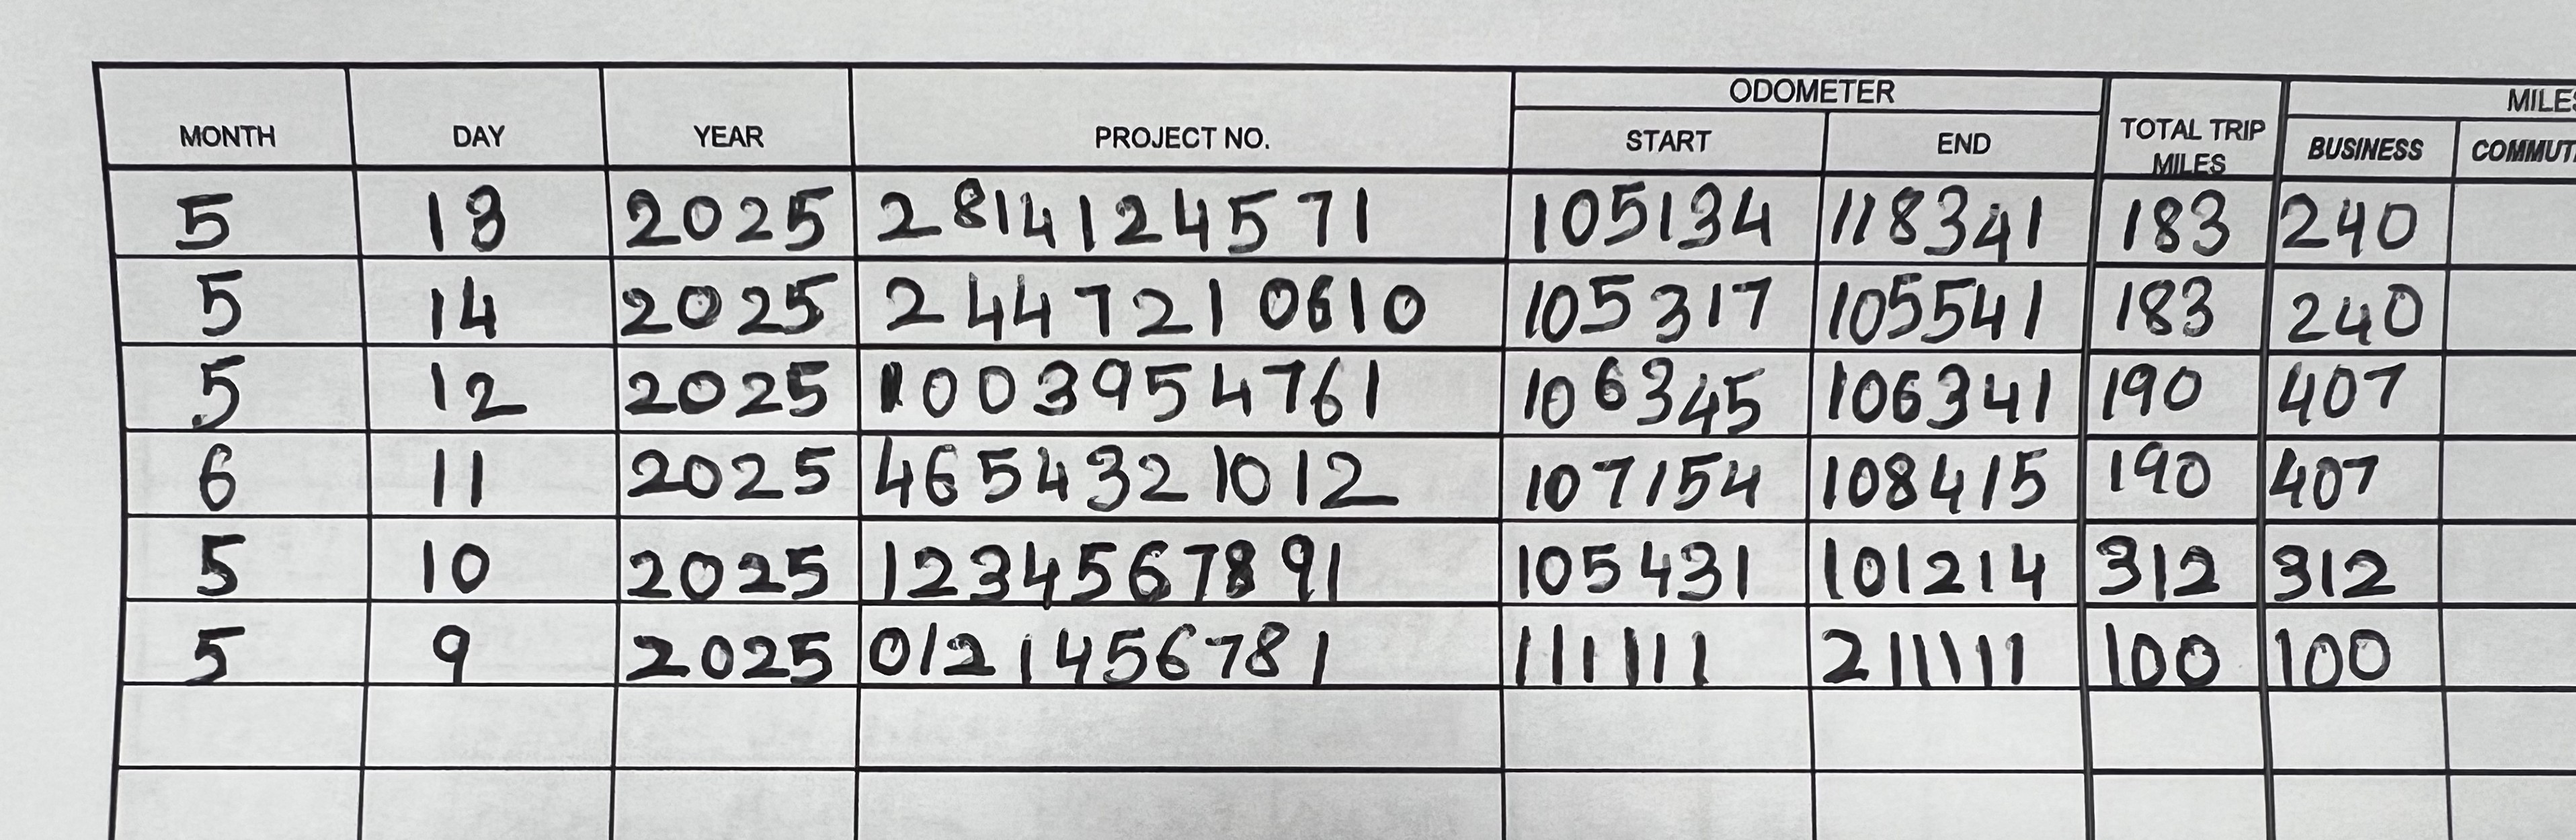 ODOMETER MILES
MONTH DAY YEAR PROJECT NO. START END TOTAL TRIP MILES BUSINESS COMMUT
5 13 2025 2814124571 105134 118341 183 240
5 14 2025 2447210610 105317 105541 183 240
5 12 2025 1003954761 106345 106341 190 407
6 11 2025 4654321012 107154 108415 190 407
5 10 2025 1234567891 105431 101214 312 312
5 9 2025 0121456781 111111 211111 100 100